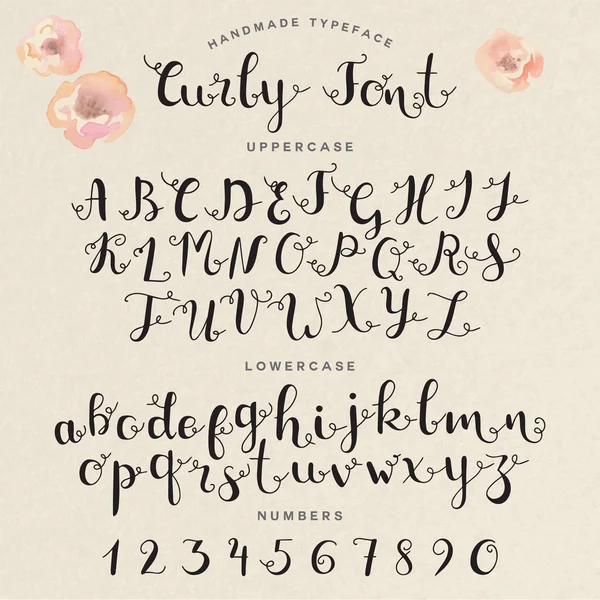 HANDMADE TYPEFACE
Curly Font
UPPERCASE
A B C D E F G H I J
K L M N O P Q R S
T U V W X Y Z
LOWERCASE
a b c d e f g h i j k l m n
o p q r s t u v w x y z
NUMBERS
1 2 3 4 5 6 7 8 9 0